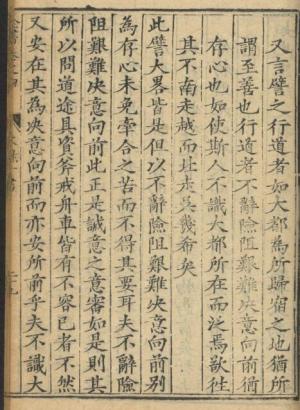 又言譬之行道者如大都為所歸宿之地猶所
謂至善也行道者不辭險阻艱難决意向前猶
存心也如使斯人不識大都所在而泛焉欲徃
其不南走越而北走吳幾希矣
此譬大畧皆是但以不辭險阻艱難决意向前别
為存心未免牽合之苦而不得其要耳夫不辭險
阻艱難决意向前此正是誠意之意審如是則其
所以問道途具資斧戒舟車皆有不容已者不然
又安在其為决意向前而亦安所前乎夫不識大